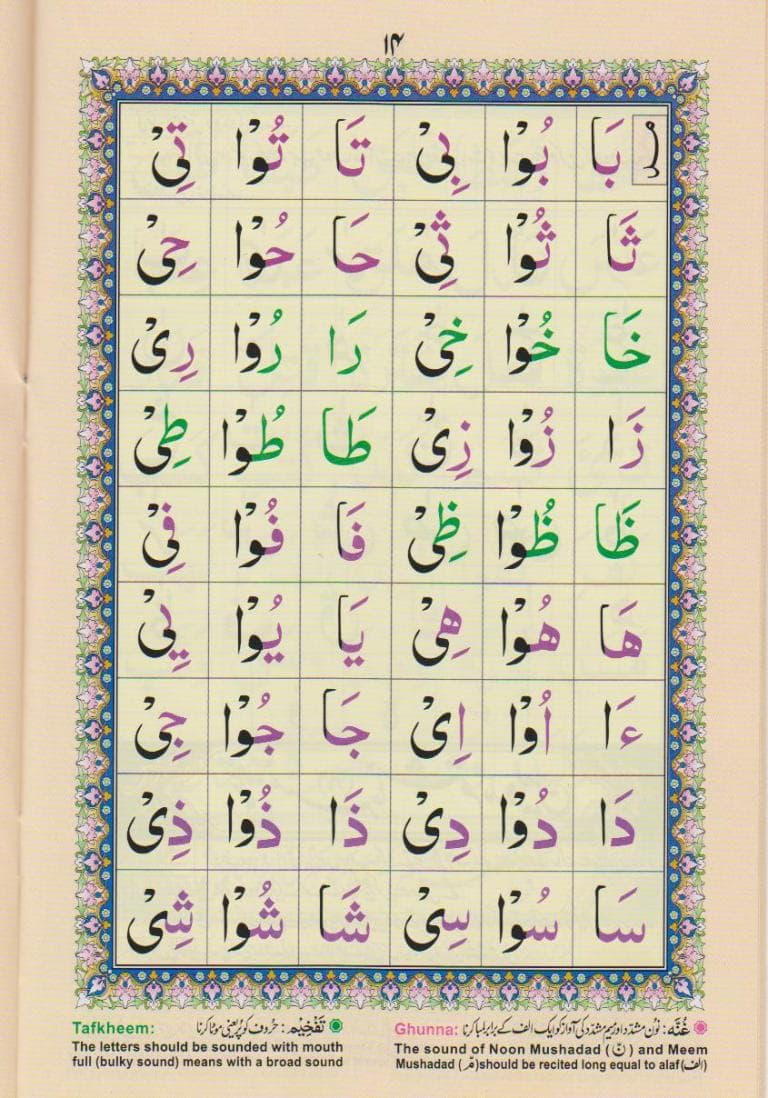 ۱۴
بَا بُوْا بِیْ تَا تُوْا تِیْ
ثَا ثُوْا ثِیْ حَا حُوْا حِیْ
خَا خُوْا خِیْ رَا رُوْا رِیْ
زَا زُوْا زِیْ طَا طُوْا طِیْ
ظَا ظُوْا ظِیْ فَا فُوْا فِیْ
هَا هُوْا هِیْ یَا یُوْا یِیْ
ءَا اُوْا اِیْ جَا جُوْا جِیْ
دَا دُوْا دِیْ ذَا ذُوْا ذِیْ
سَا سُوْا سِیْ شَا شُوْا شِیْ
غُنَّه: نُون مشدّد اور میم مشدّد کی آواز کو ایک الف کے برابر لمبا کرنا
Ghunna:
The sound of Noon Mushadad (نّ) and Meem
Mushadad (مّ)should be recited long equal to alaf(الف)
تَفْخِیْم: حُروف کو پُر یعنی موٹا کرنا
Tafkheem:
The letters should be sounded with mouth
full (bulky sound) means with a broad sound